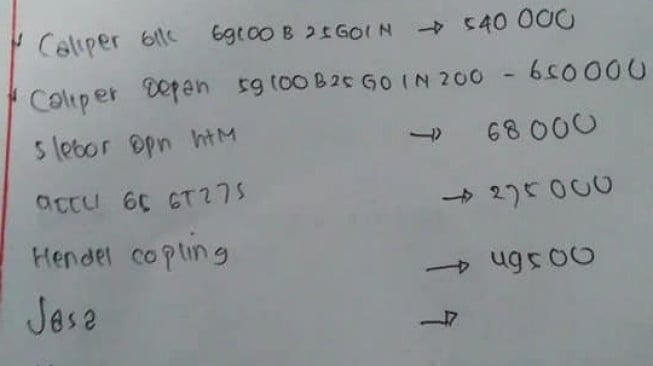 Caliper blk 69100B25G01N → 540 000
Caliper Depan 59100B25G01N200 - 650000
Slebor Dpn htM → 68 000
accu GS GT27S → 275 000
Hendel copling → 49500
Jasa →